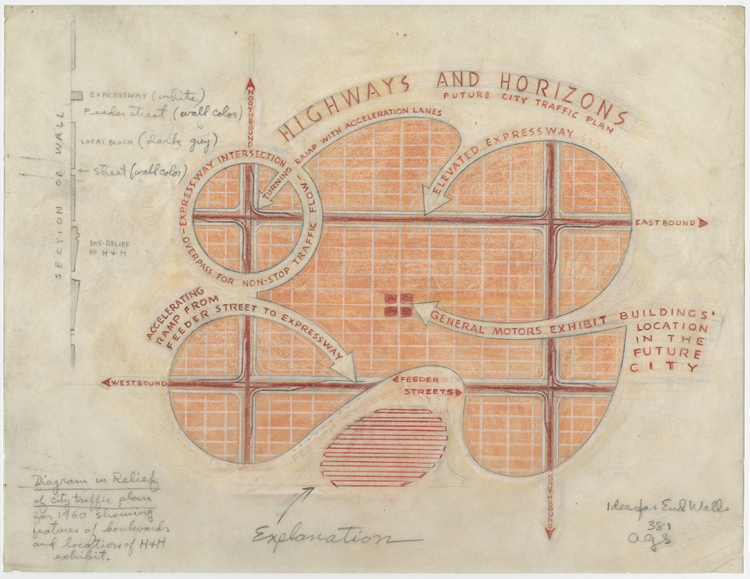 HIGHWAYS AND HORIZONS
FUTURE CITY TRAFFIC PLAN
NORTHBOUND
TURNING RAMP WITH ACCELERATION LANES
ELEVATED EXPRESSWAY
EXPRESSWAY INTERSECTION
OVERPASS FOR NON-STOP TRAFFIC FLOW
EAST BOUND
ACCELERATING
RAMP FROM
FEEDER STREET TO EXPRESSWAY
GENERAL MOTORS EXHIBIT BUILDINGS'
LOCATION
IN THE
FUTURE
CITY
WESTBOUND
FEEDER
STREETS
SECTION OF WALL
EXPRESSWAY (white)
Feeder street (wall color)
LOCAL BLOCK (darke grey)
street (wall color)
BAS-RELIEF
OF H+H
Diagram in Relief
of city traffic plan
for 1960 showing
features of boulevards
and location of H+H
exhibit.
Explanation
Idea for End Walls
381